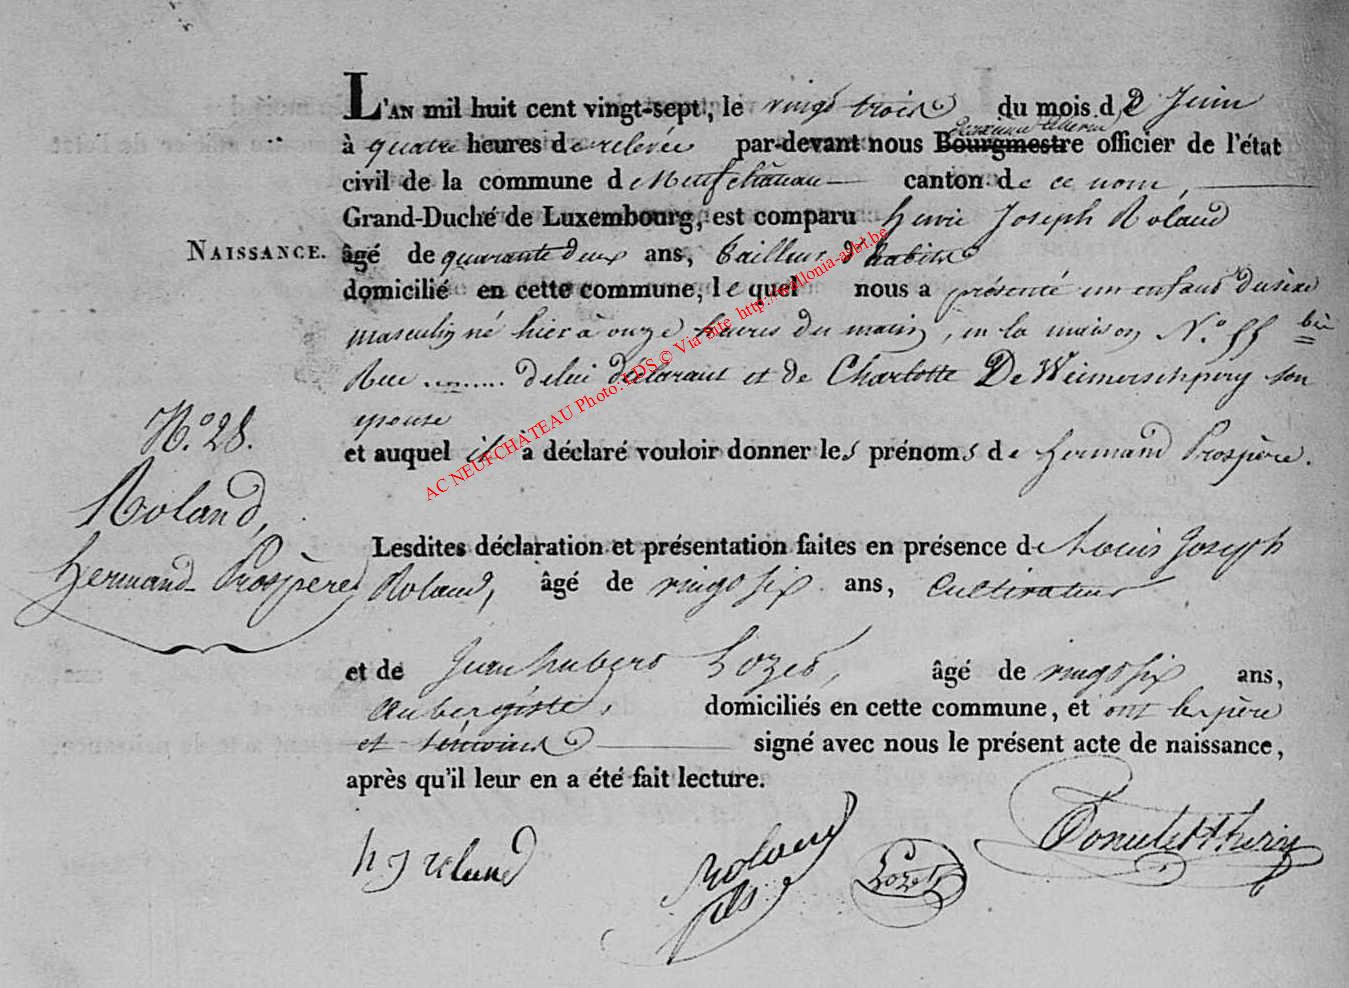 L'AN mil huit cent vingt-sept, le vingt trois du mois de Juin
à quatre heures de relevée par-devant nous Bourgmestre officier de l'état
civil de la commune de Neufchâteau canton de ce nom,
Grand-Duché de Luxembourg, est comparu henri Joseph Roland
NAISSANCE. âgé de quarante deux ans, tailleur d'habits
domicilié en cette commune, le quel nous a présenté un enfant du sexe
masculin né hier à onze heures du matin, en la maison N.° 55 bis
Rue ........ de lui déclarant et de Charlotte De Weimerschperg son
epouse
et auquel il à déclaré vouloir donner les prénoms de hermand Prospère.
N.° 28.
Roland,
hermand Prospère
Lesdites déclaration et présentation faites en présence de Louis Joseph
Roland, âgé de vingt six ans, Cultivateur
et de Jean hubert Lozet, âgé de vingt six ans,
Aubergiste, domiciliés en cette commune, et ont le père
et témoins signé avec nous le présent acte de naissance,
après qu'il leur en a été fait lecture.
h j roland
Roland fils
Lozet
AC NEUFCHATEAU Photo: LDS © Via Site http://wallonia-asbl.be